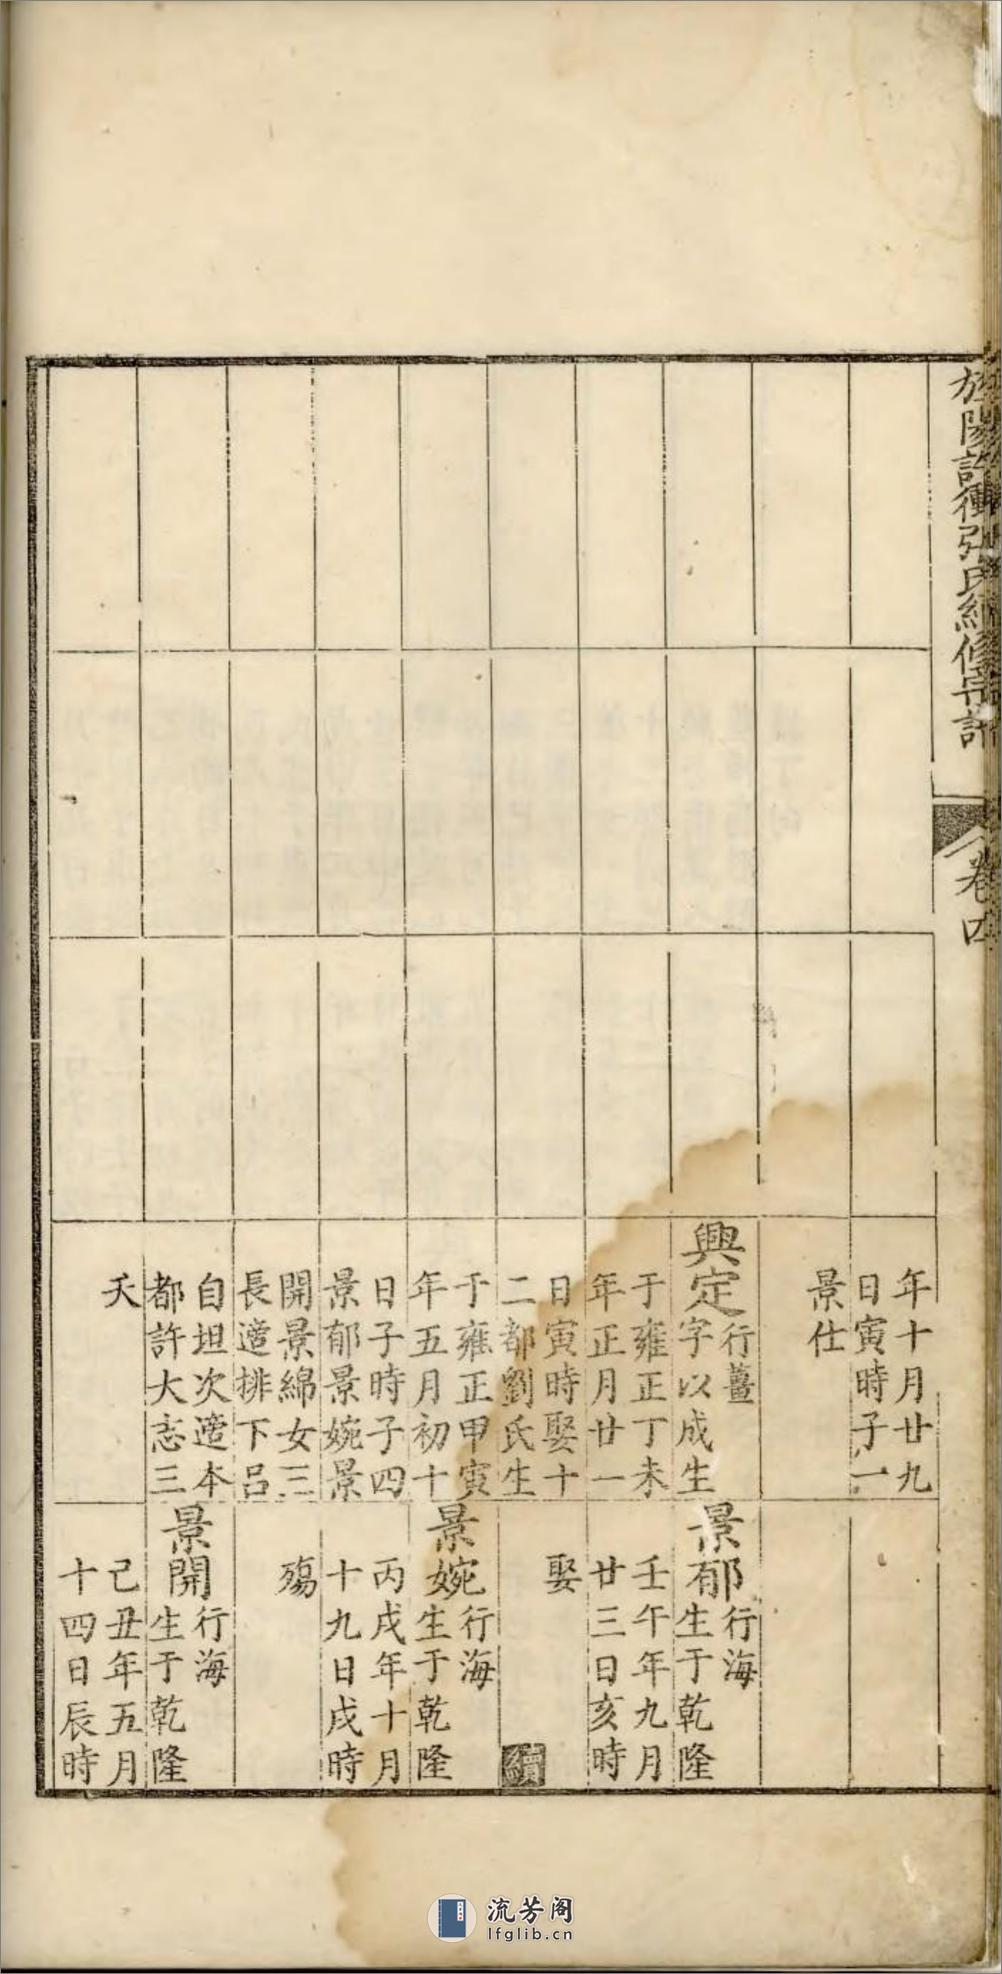 旌陽許衝張氏續修宗譜
卷四
年十月廿九
日寅時子一
景仕
興定
行薑
字以成生
于雍正丁未
年正月廿一
日寅時娶十
二都劉氏生
于雍正甲寅
年五月初十
日子時子四
景郁景婉景
開景綿女三
長適排下呂
自坦次適本
都許大志三
夭
景郁
行海
生于乾隆
壬午年九月
廿三日亥時
娶
續
景婉
行海
生于乾隆
丙戌年十月
十九日戌時
殤
景開
行海
生于乾隆
己丑年五月
十四日辰時
流芳阁
lfglib.cn